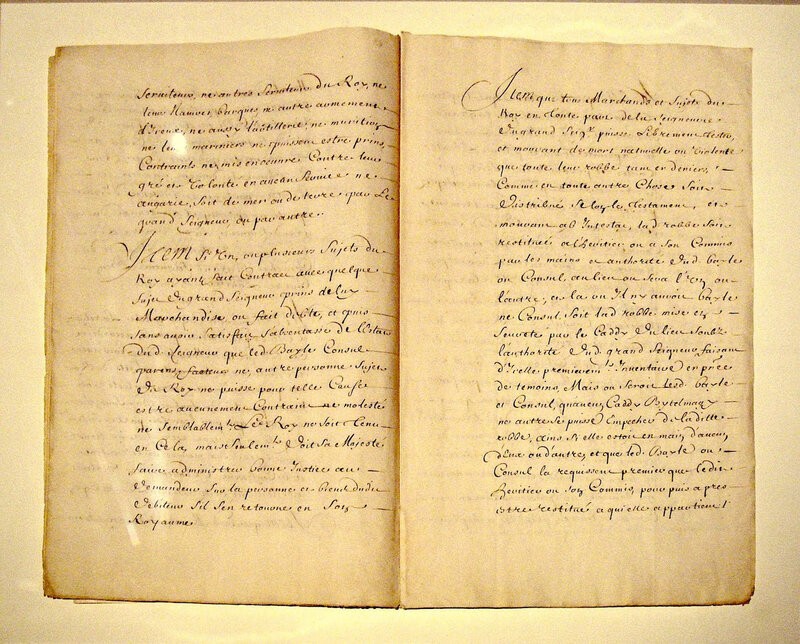 serviteurs, ne autres serviteurs du Roy, ne
leurs Navires, barques ne autre armement
d'iceux, ne aussy l'artillerie, ne munition
ne leurs mariniers ne puissent estre prins,
Contraints ne mis en oeuvre Contre leur
gré et Volonté en aucun Service ne
angarie, soit de mer ou de terre par Le
grand Seigneur, ou par autre.
Item Si Un, ou plusieurs Sujets du
Roy ayans fait Contract avec quelque
Sujet du grand Seigneur prins de luy
Marchandise, ou fait dette, et puis
sans avoir Satisfait S'absentasse de l'Estat
dud Seigneur que led. Bayle Consul
parens, facteurs ne autre personne Sujete
du Roy ne puisse pour telle Cause
estre aucunement Contraint ne molesté
ne Semblablemt. Le Roy ne soit tenu
en Cela, mais Seulemt. doit Sa Majesté
faire administrer bonne Justice au
demandeur Sur la personne et biens dudit
debiteur S'il S'en retourne en Son
Royaume
Item que tous Marchands et Sujets du
Roy en toute part de la Seigneurie
du grand Seigr. puisse Librement tester,
et mourant de mort naturelle ou Violente
que toute leur robbe tam en deniers,
Comme en toute autre Chose Soit
Distribué Selon le testament, et
mourant ab Intestat, lad robbe Soit
restituée a l'heritier ou a Son Commis
par les mains ou authorité dud. bayle
ou Consul, au lieu ou Sera l'un ou
l'autre, et la ou Il n'y auroit bayle
ne Consul Soit lad robbe mise en
Seureté par le Caddy du lieu Soubz
l'authorité dud grand Seigneur, faisant
d'icelle premieremt. Inventaire en p̄nce
de temoins, Mais ou Seroit Lesd. bayle
et Consul, qu'aucun Caddy
ne autre Se puisse Empecher de la ditte
robbe, ains Si elle estoit en mains d'aucun
d'eux ou d'autres, et que led. Bayle ou
Consul la requissent premier que ledit
heritier ou Son Commis, pour puis apres
estre restitué a qui elle appartient